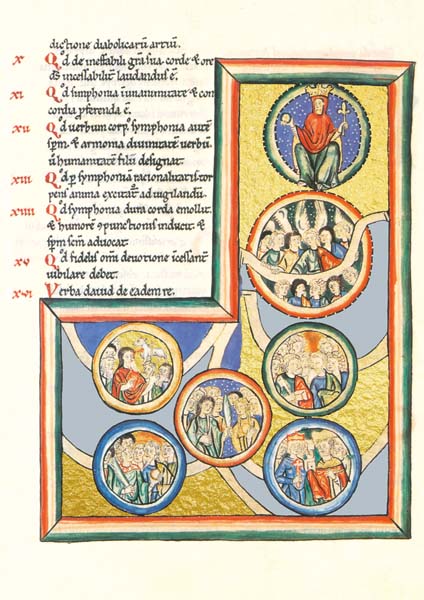 ductione diabolicarū artiū.
x Qd de ineffabili grā sua corde & ore
ds incessabilit laudandus ē.
xi Qd simphonia ī unanimitate & con
cordia pferenda ē.
xii Qd uerbum corp symphonia autē
spm & armonia diuinitatē uerbū
ū humanitatē filii designat
xiii Qd p symphoniā racionalitatis tor
pens anima excitat ad uigilandū.
xiiii Qd symphonia dura corda emollit
& humorē cpunctionis inducit &
spm scm aduocat
xv Qd fidelis omī deuotione ićessant
iubilare debet.
xvi Verba dauid de eadem re.